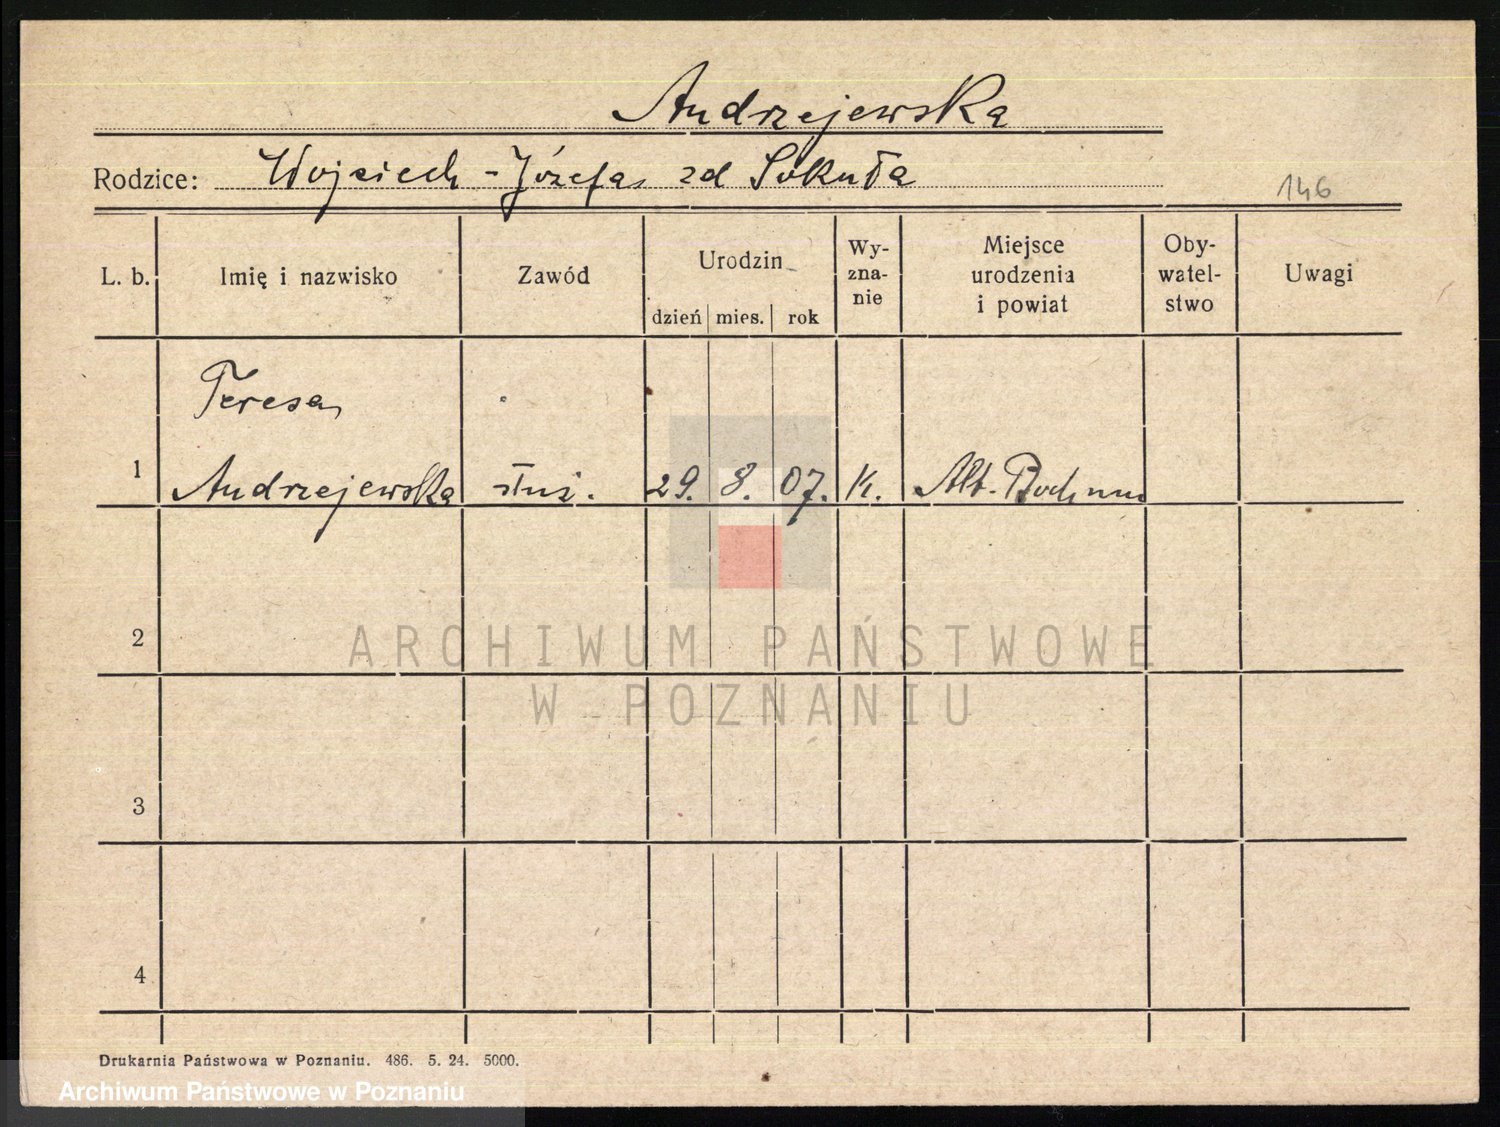 Andrzejewska
Rodzice: Wojciech - Józefa zd Sokuła
146
L. b.
Imię i nazwisko
Zawód
Urodzin
dzień mies. rok
Wy-
zna-
nie
Miejsce
urodzenia
i powiat
Oby-
watel-
stwo
Uwagi
Teresa
1 Andrzejewska służ. 29. 8. 07. K. Alt-Bochum
2
3
4
ARCHIWUM PAŃSTWOWE
W POZNANIU
Drukarnia Państwowa w Poznaniu. 486. 5. 24. 5000.
Archiwum Państwowe w Poznaniu